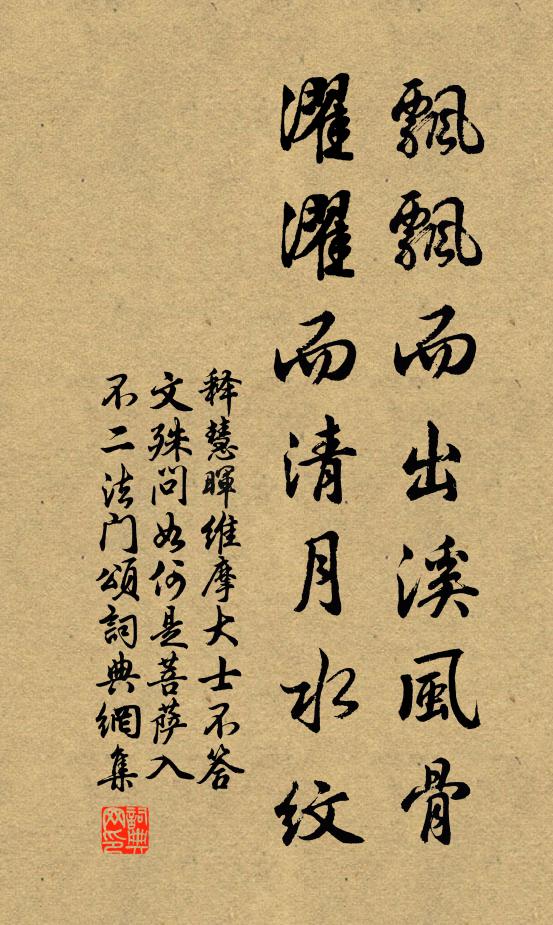 飄飄而出溪風骨
濯濯而清月水紋
释慧暉维摩大士不答
文殊问如何是菩萨入
不二法门頌詞典網集
詞典
网印